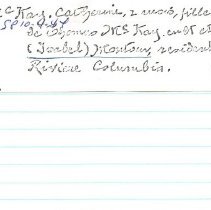 McKay, Catherine, 2 mois, fille
de Thomas McKay eult et
(Isabel) Montour, resident
Riviere Columbia.